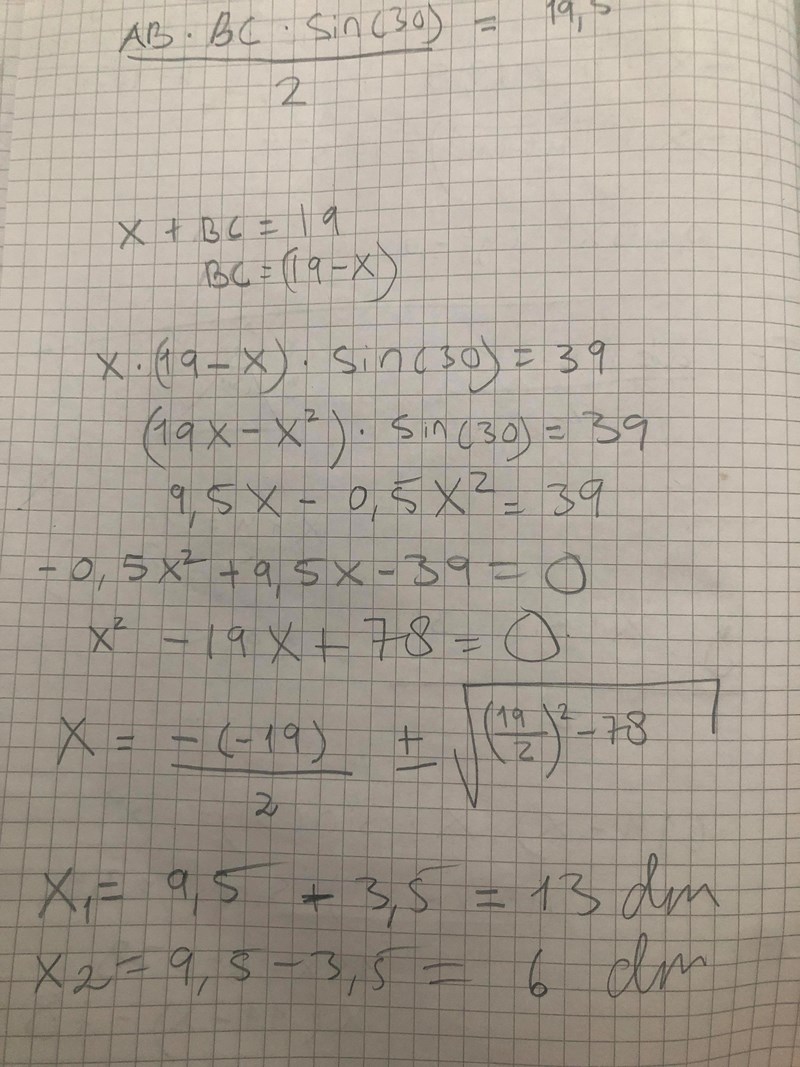 AB · BC · Sin(30) = 19,5
2
x + BC = 19
BC = (19-x)
x · (19-x) · sin(30) = 39
(19x - x²) · sin(30) = 39
9,5x - 0,5x² = 39
-0,5x² + 9,5x - 39 = 0
x² - 19x + 78 = 0
x = -(-19)/2 ± √((19/2)² - 78)
x₁ = 9,5 + 3,5 = 13 dm
x2 = 9,5 - 3,5 = 6 dm